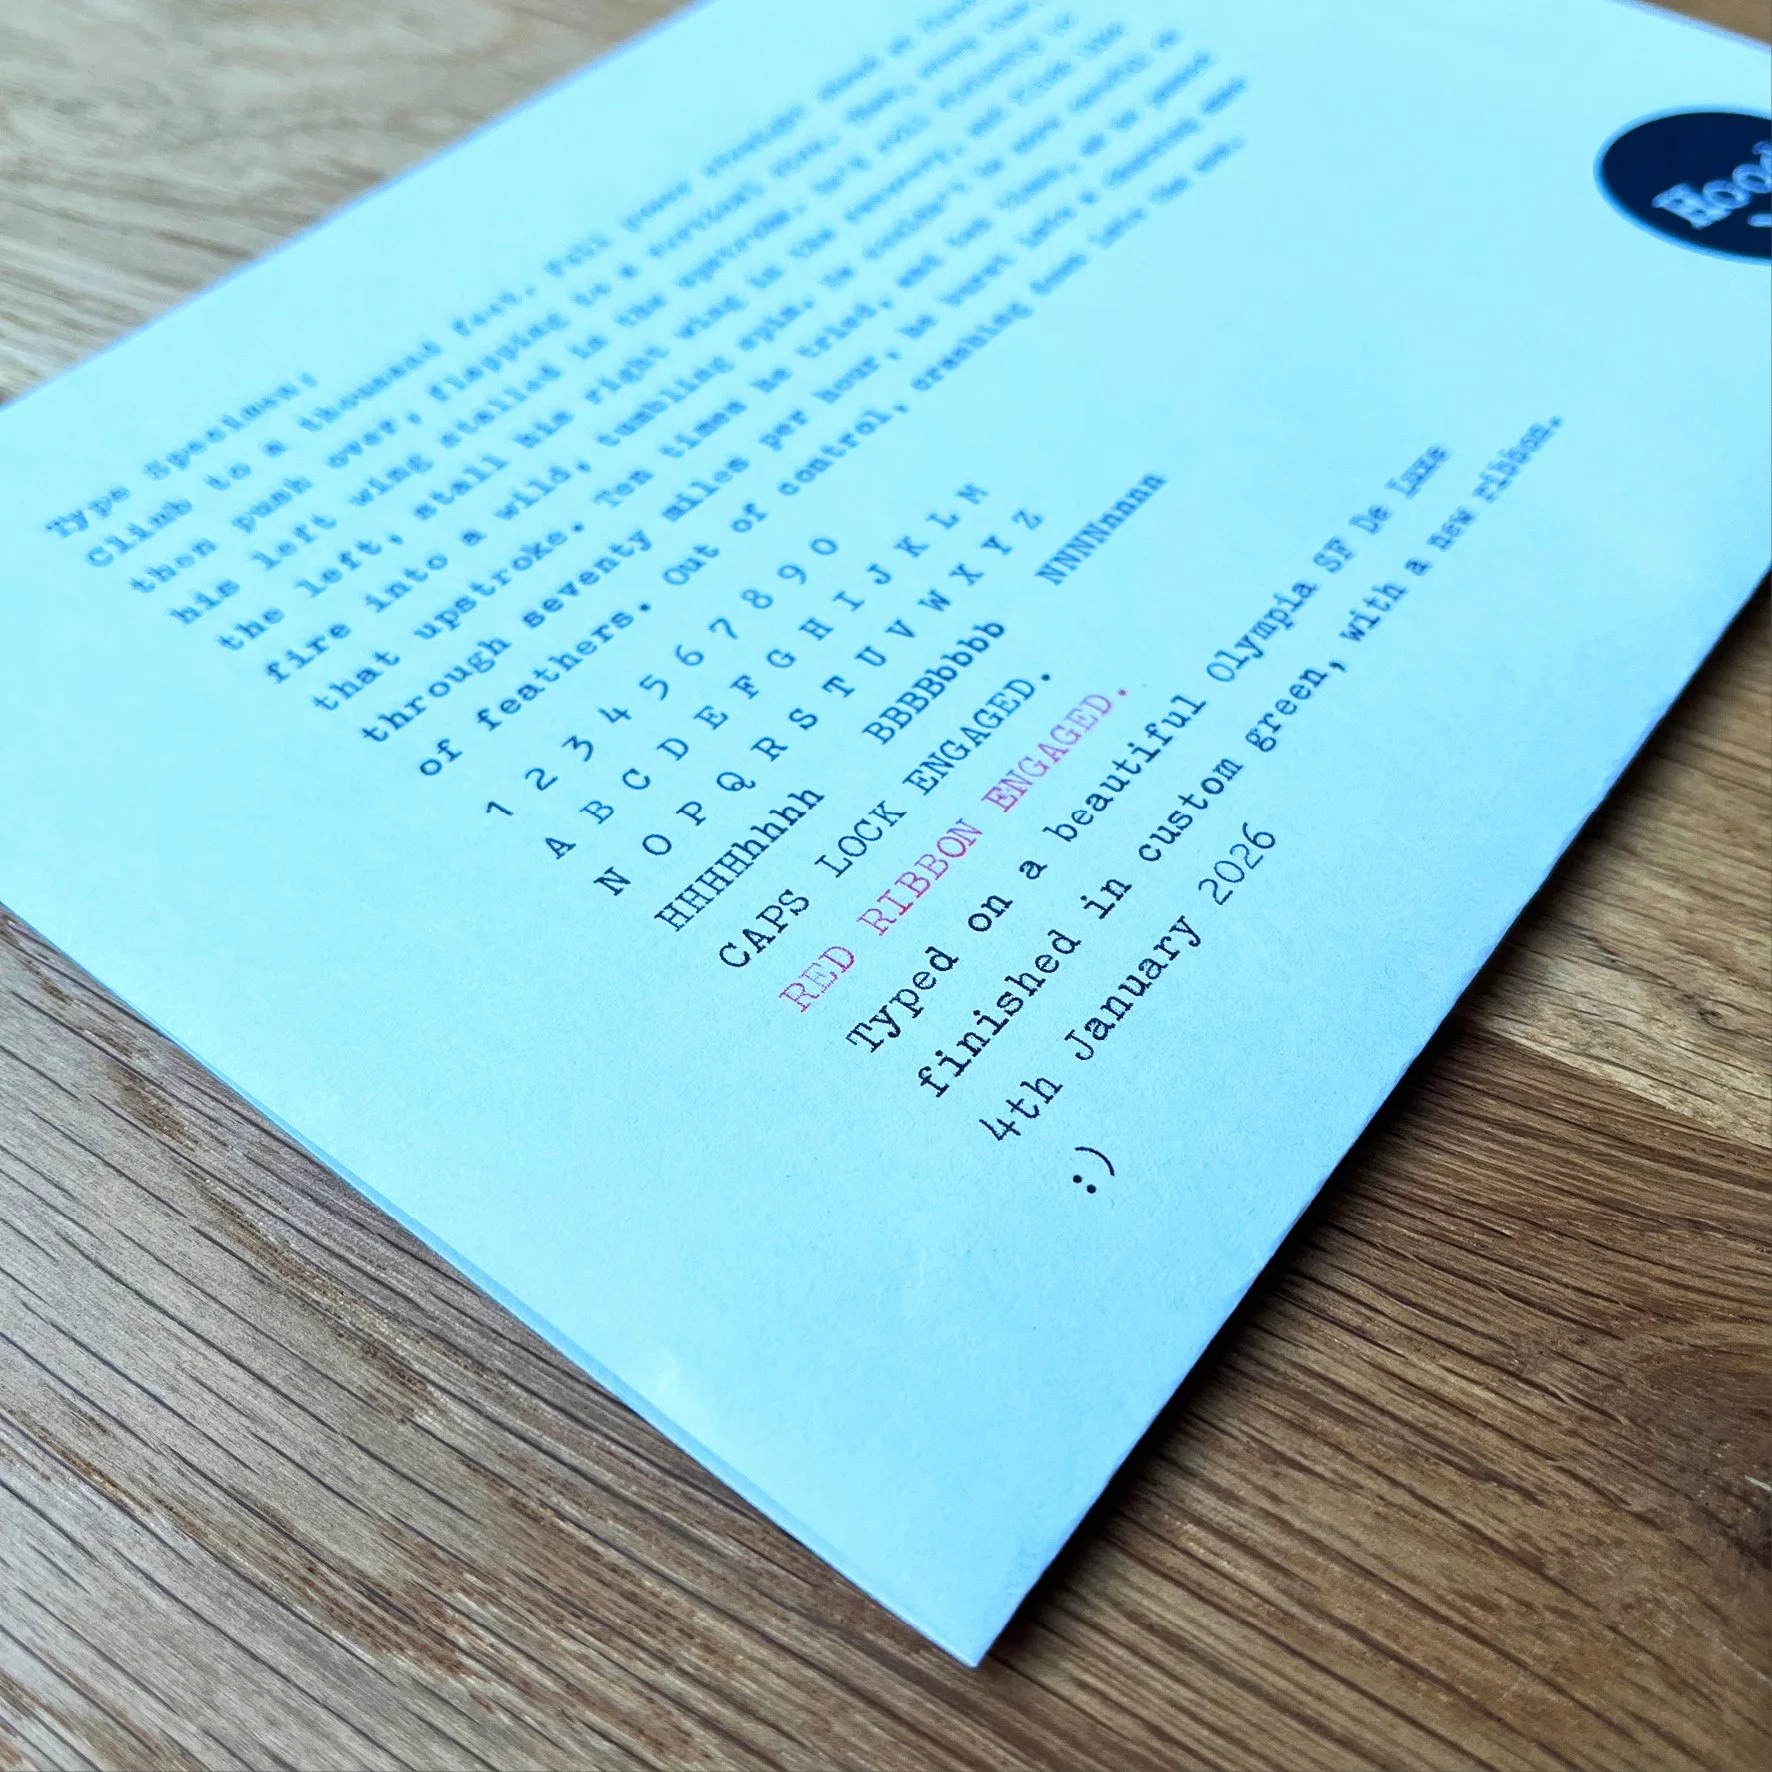 Type Specimen;
Climb to a thousand feet. Full power straight ahead first,
then push over, flapping to a vertical dive. Then, every time,
his left wing stalled in the upstroke. He'd roll violently to
the left, stall his right wing in the recovery, and flick like
fire into a wild, tumbling spin. He couldn't be careful
that upstroke. Ten times he tried, and ten times, as he passed
through seventy miles per hour, he burst into a churning mass
of feathers. Out of control, crashing down into the sea.
1 2 3 4 5 6 7 8 9 0
A B C D E F G H I J K L M
N O P Q R S T U V W X Y Z
HHHHhhhhh BBBBbbbbb NNNNnnnnn
CAPS LOCK ENGAGED.
RED RIBBON ENGAGED.
Typed on a beautiful Olympia SF De Luxe
finished in custom green, with a new ribbon.
4th January 2026
:)